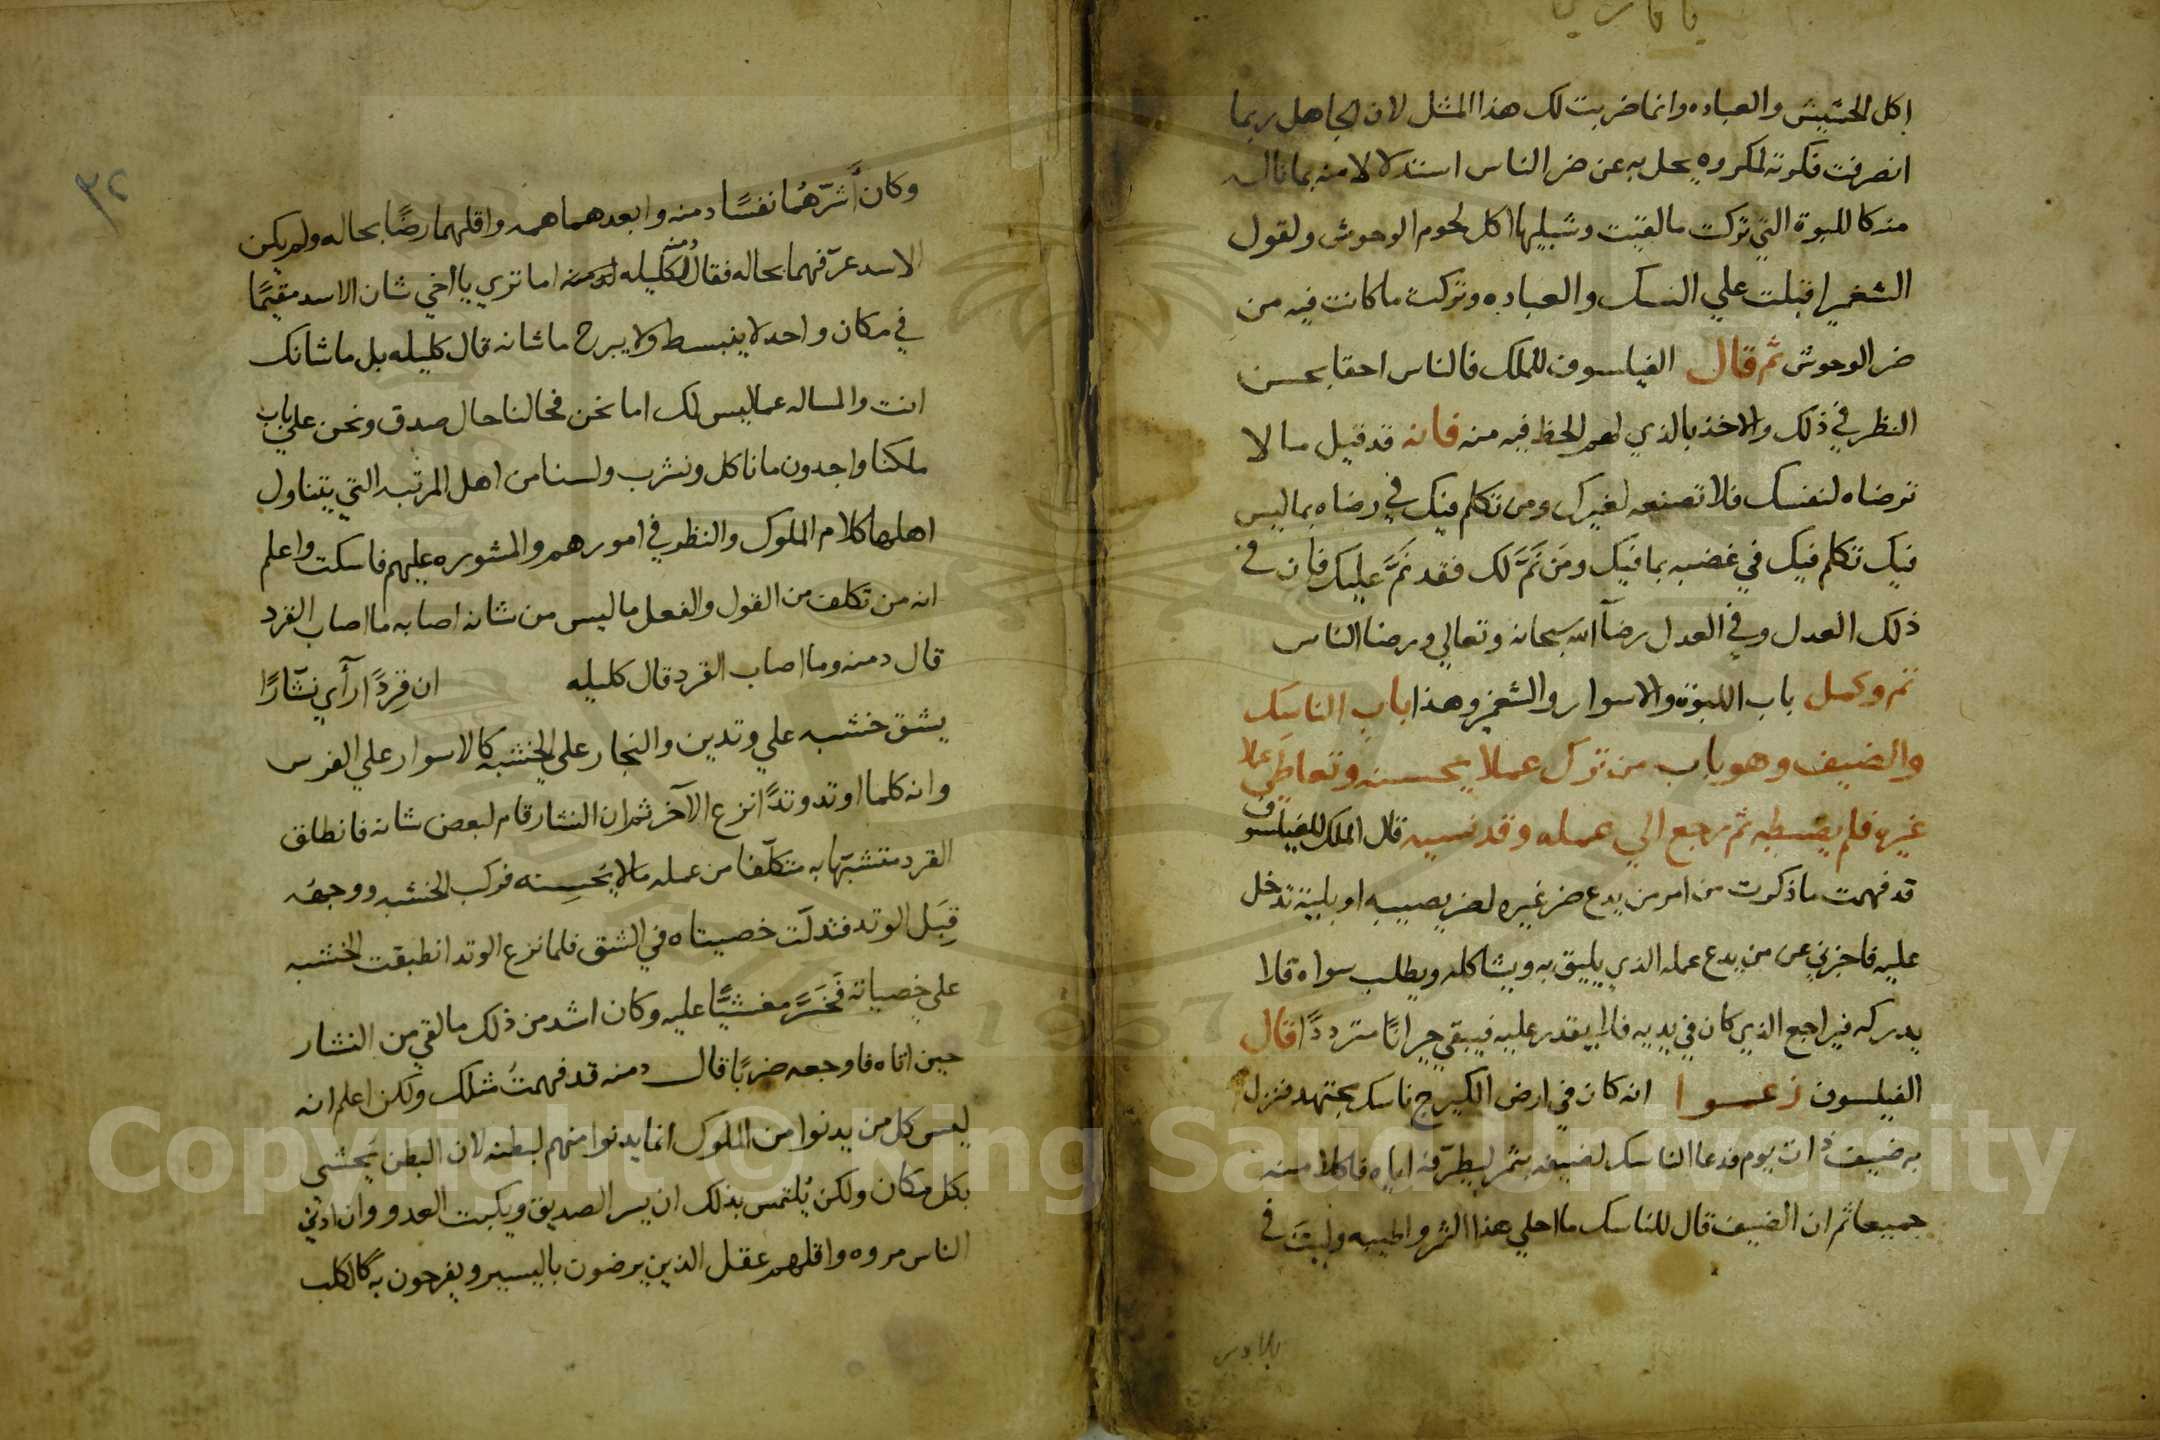 يا قارئ
اكل الحشيش والعباده وانما ضربت لك هذا المثل لان الجاهل ربما
انصرفت فكرته لمكروه يحل به عن ضر الناس استدلالا منه بما ناله
منه كاللبوة التي تركت ما لقيت وشبليها اكل لحوم الوحوش ولقول
الشغبر اقبلت علي النسك والعباده وتركت ما كانت فيه من
ضر الوحوش ثم قال الفيلسوف للملك فالناس احقا بحسن
النظر في ذلك والاخذ بالذي لهم الحظ فيه منه فانه قد قيل ما لا
ترضاه لنفسك فلا تصنعه لغيرك ومن تكلم فيك في رضاه بما ليس
فيك تكلم فيك في غضبه بما فيك ومَن نَمَّ لك فقد نَمَّ عليك فان في
ذلك العدل وفي العدل رضآ الله سبحانه وتعالي ورضا الناس
تم وكمل باب اللبوة والاسوار والشغبر وهذا باب الناسك
والضيف وهو باب من ترك عملا يحسنه وتعاطي عملا
غيره فلم يضبطه ثم رجع الي عمله وقد نسيه قال الملك للفيلسوف
قد فهمت ما ذكرت من امر من يدع ضر غيره لضر يصيبه او بلية تدخل
عليه فاخبرني عن من يدع عمله الذي يليق به ويشاكله ويطلب سواه فلا
يدركه فيراجع الذي كان في يديه فلا يقدر عليه فيبقي حيرانًا مترددًا قال
الفيلسوف زعموا انه كان في ارض الكيرج ناسك مجتهد فنزل
به ضيف ذات يوم فدعا الناسك لضيفه بتمر ليطرّفه اياه فاكلا منه
جميعا ثم ان الضيف قال للناسك ما احلي هذا التمر واطيبه وليتَ في
بلادي
٣٢
وكان أشرّهُما نفسًا دمنه وابعدهما همه واقلهما رضًا بحاله ولم يكن
الاسد عرّفهما بحاله فقال دمنه لكليله اما تري يا اخي شان الاسد مقيمًا
في مكان واحد لا ينبسط ولا يبرح ما شانه قال كليله بل ما شانك
انت والمساله عما ليس لك اما نحن فحالنا حال صدق ونحن علي باب
ملكنا واجدون ما ناكل ونشرب ولسنا من اهل المرتبه التي يتناول
اهلها كلام الملوك والنظر في امورهم والمشوره عليهم فاسكت واعلم
انه من تكلف من القول والفعل ما ليس من شانه اصابه ما اصاب القرد
قال دمنه وما اصاب القرد قال كليله ان قِردًا رآي نشّارًا
يشق خشبه علي وتدين والنجار علي الخشبه كالاسوار علي الفرس
وانه كلما اوتد وتدًا نزع الآخر ثم ان النشار قام لبعض شانه فانطلق
القرد متشبّها به متكلّفا من عمله ما لا يُحسِنه فركب الخشبه ووجهُه
قِبَل الوتد فتدلّت خصيتاه في الشق فلما نزع الوتد انطبقت الخشبه
علي خصياته فَخَرَّ مغشيًّا عليه وكان اشد من ذلك ما لقي من النشار
حين اتاه فاوجعه ضربًا قال دمنه قد فهمتُ مثلك ولكن اعلم انه
ليس كل من يدنوا من الملوك انما يدنوا منهم لبطنه لان البطن يُحشي
بكل مكان ولكن يُلتمس بذلك ان يسر الصديق ويكبت العدو وان ادني
الناس مروه واقلهم عقل الذين يرضون باليسير ويفرحون به كالكلب
Copyright © King Saud University
1957